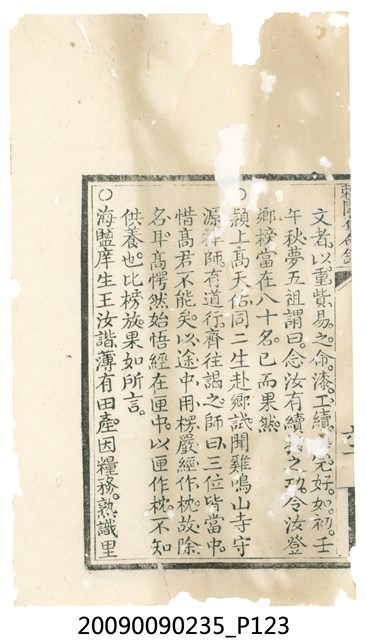 文者、以重貲易之。命漆工續。完好如初。壬
午秋夢五祖謂曰。念汝有續之功。令汝登
鄉榜當在八十名。已而果然。
○潁上高天佑同二生赴鄉試。聞雞鳴山寺守
源禪師有道行。齊往謁之。師曰。三位皆當中。
惜高君不能矣。以途中用楞嚴經作枕。故除
名耳。高愕然始悟。經在匣中。以匣作枕。不知
供養也。比榜放。果如所言。
○海鹽庠生王汝諧薄有田產。因糧務。熟識里
20090090235_P123